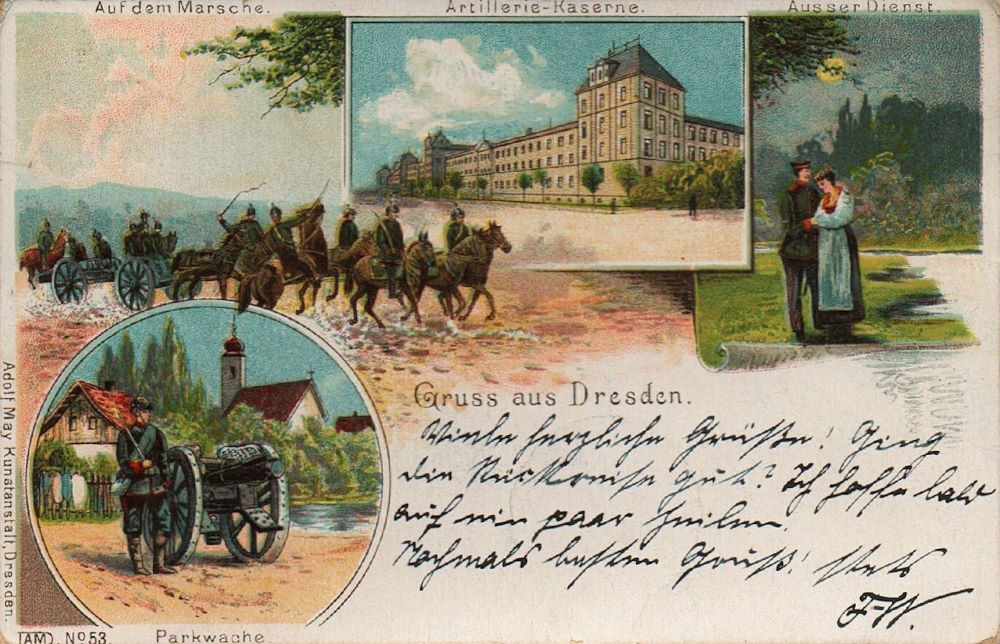 Auf dem Marsche.
Artillerie-Kaserne.
Ausser Dienst.
Gruss aus Dresden.
Viele herzliche Grüße! Ging
die Rückreise gut? Ich hoffe bald
auf ein paar Zeilen.
Nochmals besten Gruß! stets
F.W.
Adolf May Kunstanstalt, Dresden.
(AMD) No 53.
Parkwache.